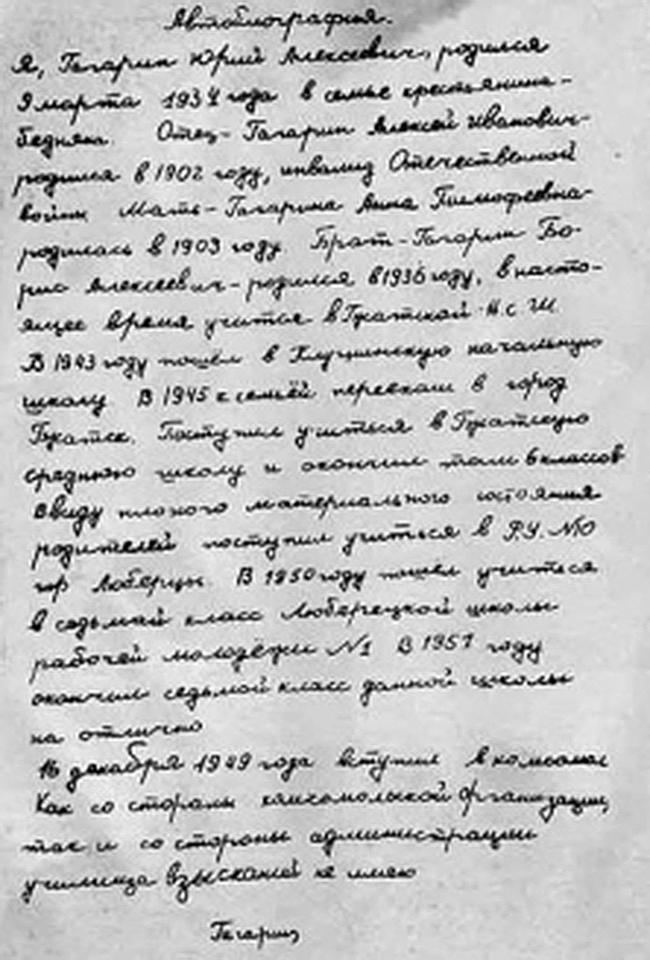 Автобиография.
Я, Гагарин Юрий Алексеевич, родился
9 марта 1934 года в семье крестьянина-
бедняка. Отец - Гагарин Алексей Иванович-
родился в 1902 году, инвалид Отечественной
войны Мать - Гагарина Анна Тимофеевна-
родилась в 1903 году. Брат - Гагарин Бо-
рис Алексеевич - родился в 1936 году, в насто-
ящее время учится в Гжатской Н.С.Ш.
В 1943 году пошёл в Клушинскую начальную
школу. В 1945 с семьёй переехал в город
Гжатск. Поступил учиться в Гжатскую
среднюю школу и окончил там 6 классов
Ввиду плохого материального состояния
родителей поступил учиться в Р.У. №10
гор Люберцы. В 1950 году пошёл учиться
в седьмой класс Люберецкой школы
рабочей молодёжи №1 В 1951 году
окончил седьмой класс данной школы
на отлично
16 декабря 1949 года вступил в комсомол
Как со стороны комсомольской организации,
так и со стороны администрации
училища взысканий не имею
Гагарин